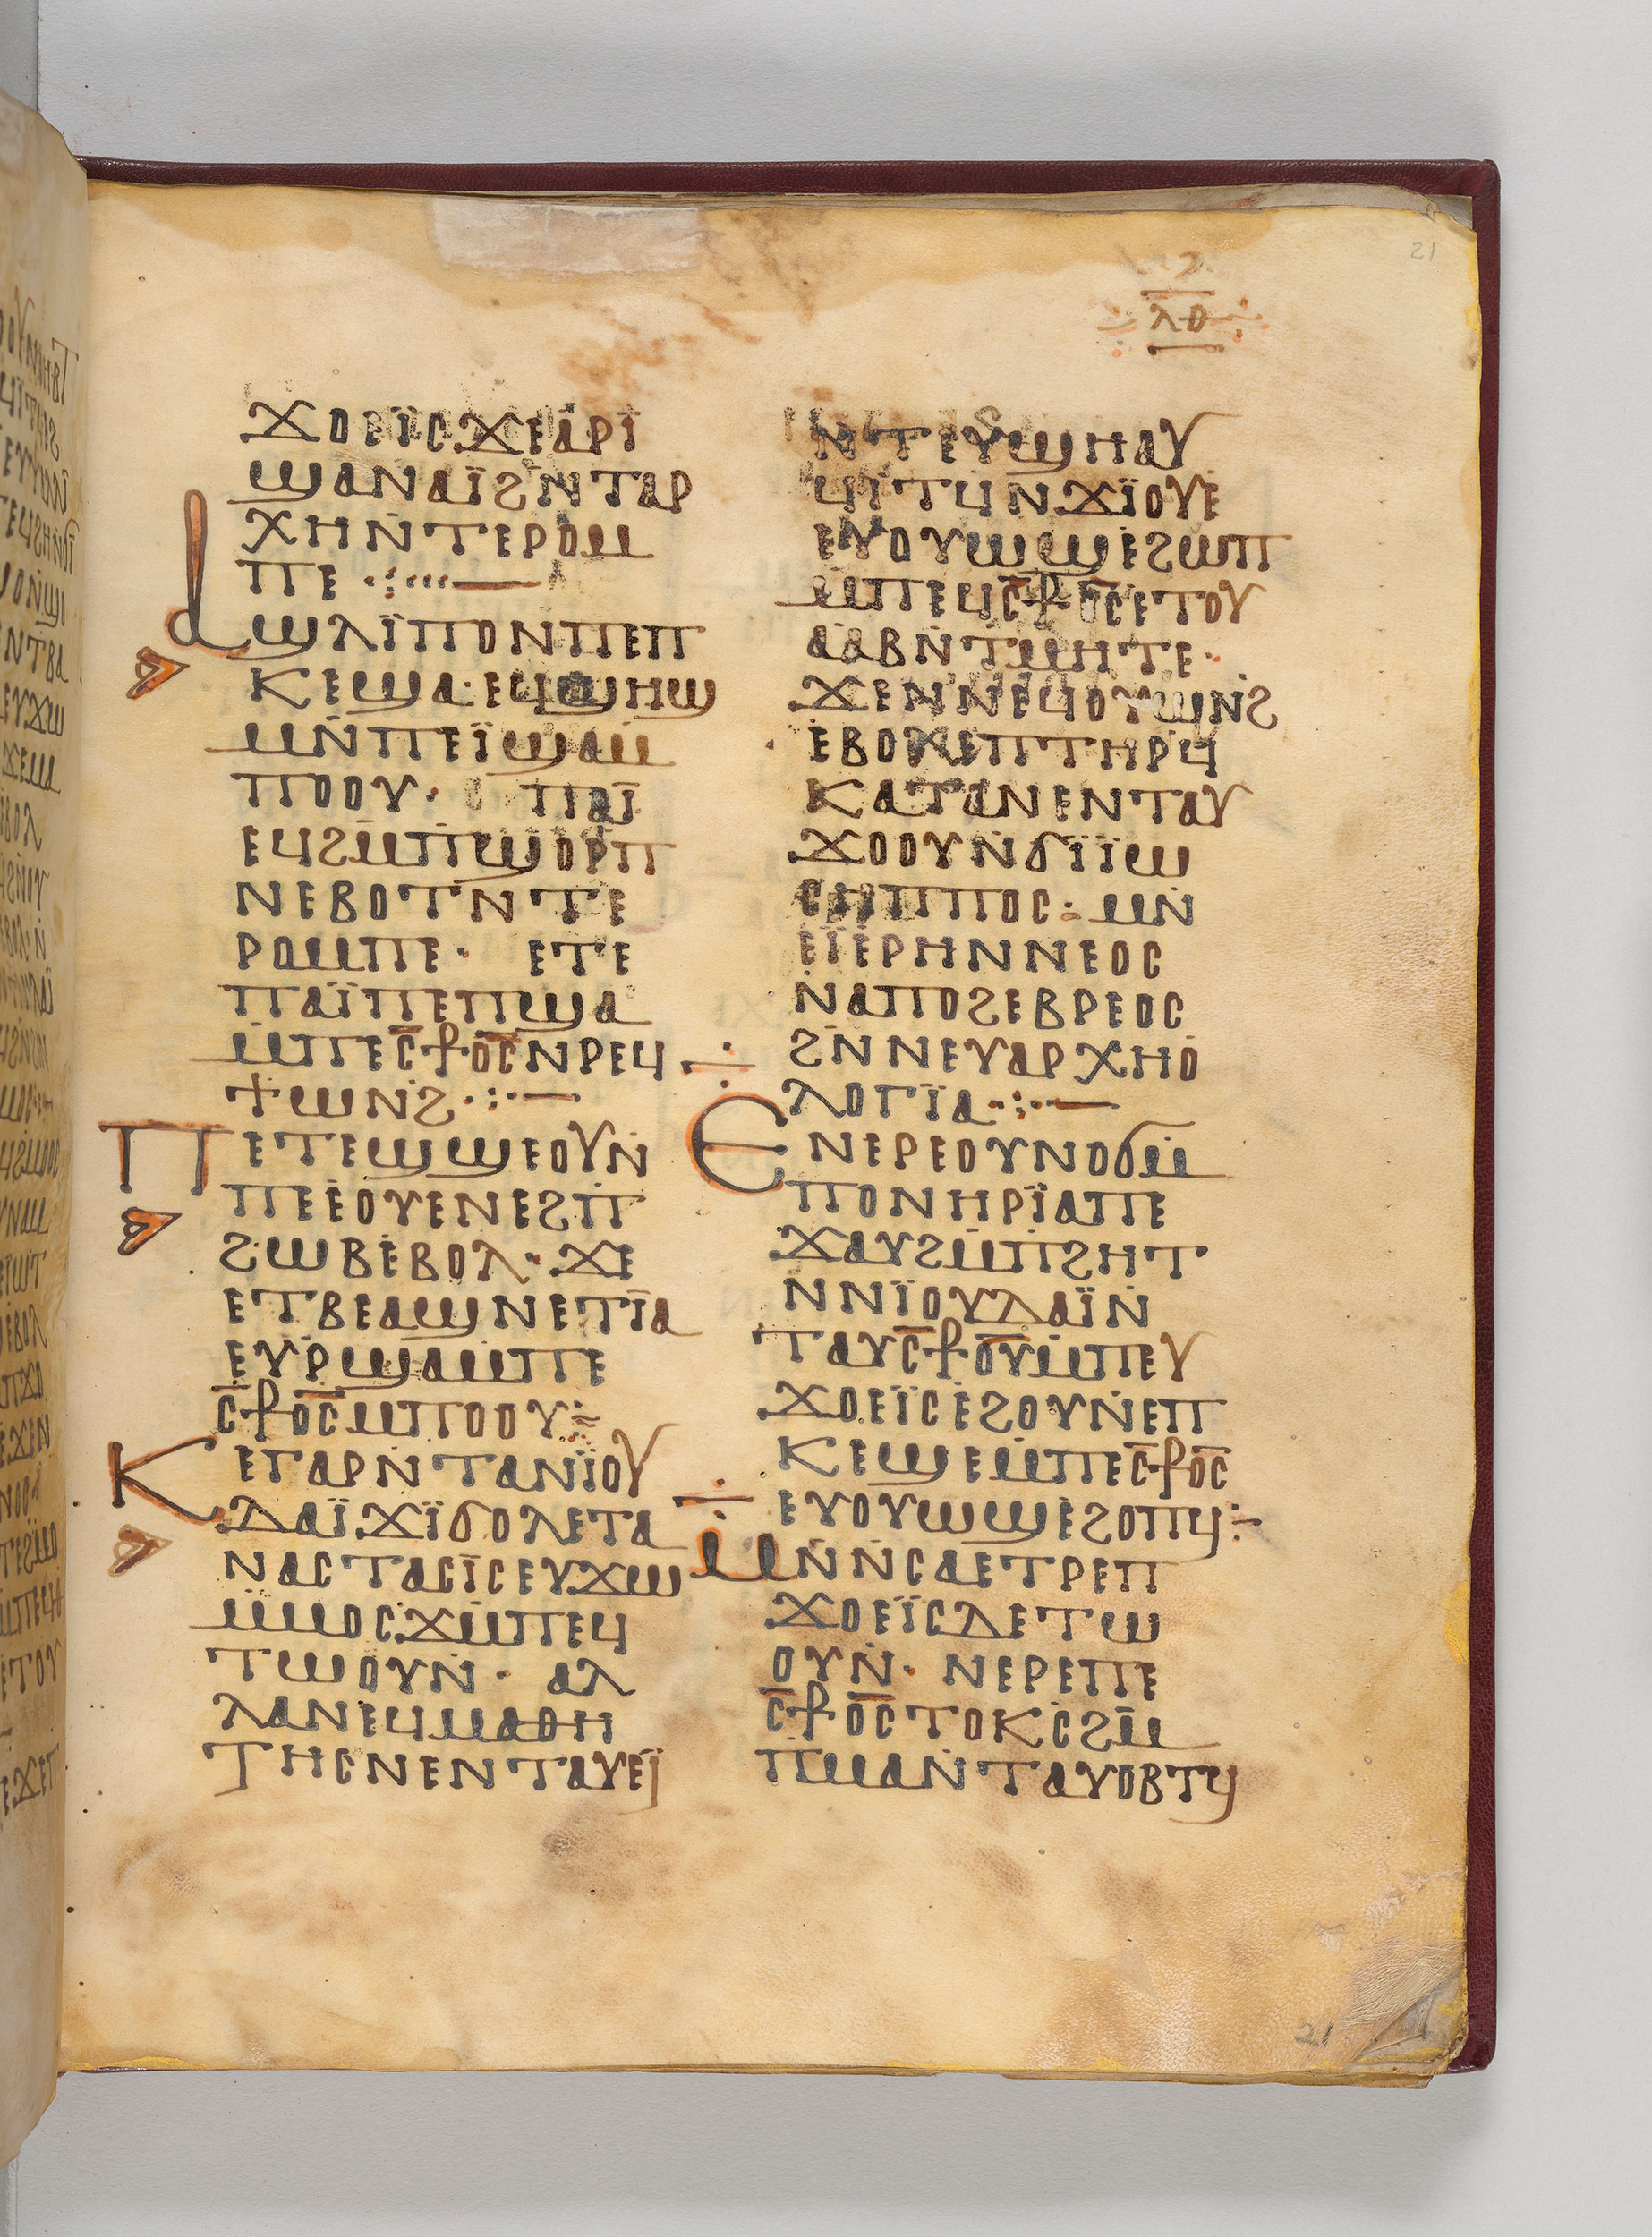 21
ⲗⲑ
ϫⲟⲉⲓ̈ⲥ ϫⲉⲁⲣⲓ
ϣⲁⲛⲁⲓ̈ϩⲛ̇ⲧⲁⲣ
ⲭⲏⲛ̇ⲧⲉⲣⲟⲙ
ⲡⲉ ·:····—
ⲁϣⲗⲓ̈ⲡⲟⲛⲡⲉⲡ
ⲕⲉϣⲁ·ⲉϥϣⲏϣ
ⲙⲛ̇ⲡⲉⲓ̈ϣⲁⲙ̇
ⲡⲟⲟⲩ· ⲡⲁⲓ̈
ⲉϥϩⲙ̇ⲡ̇ϣⲟⲣⲡ
ⲛⲉⲃⲟⲧⲛ̇ⲧⲉ
ⲣⲟⲙⲡⲉ· ⲉⲧⲉ
ⲡⲁⲓ̈ⲡⲉⲡϣⲁ
ⲙ̇ⲡⲉⲥ̅ⳁⲟ̅ⲥ̅ⲛ̇ⲣⲉϥ
ϯⲱⲛϩ̇·:·—
ⲡⲉⲧⲉϣϣⲉⲟⲩⲛ
ⲡⲉⲉ̇ⲟⲩⲉⲛⲉϩⲡ̇
ϩⲱⲃⲉ̇ⲃⲟⲗ· ϫⲉ
ⲉⲧⲃⲉⲁϣⲛⲉⲧⲓ̈ⲁ
ⲉⲩⲣ̇ϣⲁⲙ̇ⲡⲉ
ⲥ̅ⳁⲟ̅ⲥ̅ⲙ̇ⲡⲟⲟⲩ÷
ⲕⲉⲅⲁⲣⲛ̇ⲧⲁⲛⲓ̈ⲟⲩ
ⲇⲁⲓ̈ϫⲓ̈ϭⲟⲗⲉⲧⲁ
ⲛⲁⲥⲧⲁⲥⲓ̈ⲥⲉⲩϫⲱ
ⲙ̇ⲙⲟⲥϫⲙ̇ⲡⲉϥ
ⲧⲱⲟⲩⲛ̇· ⲁⲗ
ⲗⲁⲛⲉϥⲙⲁⲑⲏ
ⲧⲏⲥⲛⲉⲛⲧⲁⲩⲉⲓ̈
ⲛ̇ⲧⲉⲩϣⲏⲁⲩ
ϥⲓⲧϥⲛ̇ϫⲓ̈ⲟⲩⲉ̇
ⲉⲩⲟⲩⲱϣⲉ̇ϩⲱⲡ
ⲙ̇ⲡⲉϥⲥ̅ⳁⲟ̅ⲥ̅ⲉⲧⲟⲩ
ⲁⲁⲃⲛ̇ⲧⲙ̇ⲏⲧⲉ·
ϫⲉⲛⲛⲉϥⲟⲩⲱⲛϩ̇
ⲉ̇ⲃⲟⲗⲉⲡⲧⲏⲣϥ
ⲕⲁⲧⲁⲛⲉⲛⲧⲁⲩ
ϫⲟⲟⲩⲛ̇ϭⲓ̈ⲓ̈ⲱ
ⲥⲏⲡⲡⲟⲥ· ⲙⲛ̇
ⲉⲓ̈ⲉⲣⲏⲛⲛⲉⲟⲥ
ⲛ̇ⲁⲡⲟϩⲉⲃⲣⲉⲟⲥ
ϩⲛ̇ⲛⲉⲩⲁⲣⲭⲏⲟ̇
ⲗⲟⲅⲓ̈ⲁ·:·—
ⲉⲛⲉⲣⲉⲟⲩⲛⲟϭⲙ̇
ⲡⲟⲛⲏⲣⲓ̈ⲁⲡⲉ
ϫⲁⲩϩⲙ̇ⲡ̇ϩⲏⲧ
ⲛ̇ⲛⲓ̈ⲟⲩⲇⲁⲓ̈ⲛ̇
ⲧⲁⲩⲥ̅ⳁⲟ̅ⲩ̅ⲙ̇ⲡⲉⲩ
ϫⲟⲉⲓ̈ⲥⲉ̇ϩⲟⲩⲛ̇ⲉⲡ
ⲕⲉϣⲉⲙ̇ⲡⲉⲥ̅ⳁⲟ̅ⲥ̅
ⲉⲩⲟⲩⲱϣⲉ̇ϩⲟⲡϥ÷
ⲙⲛ̇ⲛ̇ⲥⲁⲉⲧⲣⲉⲡ
ϫⲟⲉⲓ̈ⲥⲇⲉⲧⲱ
ⲟⲩⲛ̇· ⲛⲉⲣⲉⲡⲉ
ⲥ̅ⳁⲟ̅ⲥ̅ⲧⲟⲕⲥ̇ϩⲙ̇
ⲡ̇ⲙⲁⲛ̇ⲧⲁⲩⲟⲃⲧϥ
21